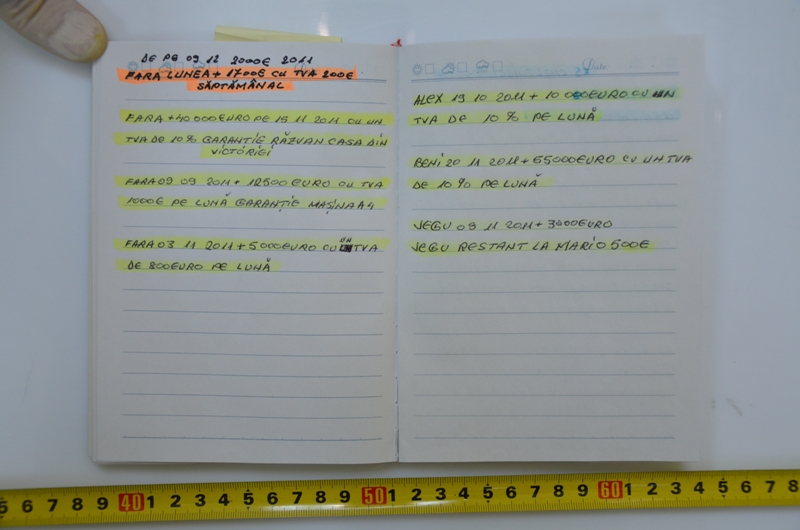 DE PE 09 12 2000€ 2011
FARA LUNEA + 1700€ CU TVA 200€
SĂPTĂMÂNAL
FARA +40000EURO PE 15 11 2011 CU UN
TVA DE 10% GARANTIE RĂZVAN CASA DIN
VICTORIEI
FARA 09 09 2011 + 12500 EURO CU TVA
1000€ PE LUNĂ GARANȚIE MAȘINA A4
FARA 03 11 2011 + 5000EURO CU UN TVA
DE 800EURO PE LUNĂ
Date
ALEX 19 10 2011 + 10 000EURO CU UN
TVA DE 10% PE LUNĂ
RENI 20 11 2011 + 65000EURO CU UN TVA
DE 10% PE LUNĂ
VEGU 09 11 2011 + 3000EURO
VEGU RESTANT LA MARIO 500€
5 6 7 8 9 40 1 2 3 4 5 6 7 8 9 50 1 2 3 4 5 6 7 8 9 60 1 2 3 4 5 6 7 8